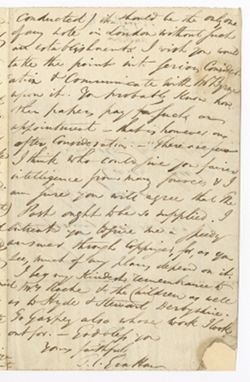 conducted) it should be the only one
of any note in London without such
an establishment. I wish you would
take the point into serious consider
ation & communicate with Mr Byrne
upon it. You probably know how
other papers pay for such an
appointment – that is however an
after consideration. – There are
I think who could give you
intelligence from many sources & I
am sure you will agree that the
Post ought to be so supplied. I
intreat you to give me a speedy
answer through for as you
see, much of my plans depend on it.
I beg my kindest remembrance to
Mrs Roche & the children as well
as to Hyde & Stewart Derbyshire.
To Gaspey also whose work I look
out for. – God bless you
Yours faithfully